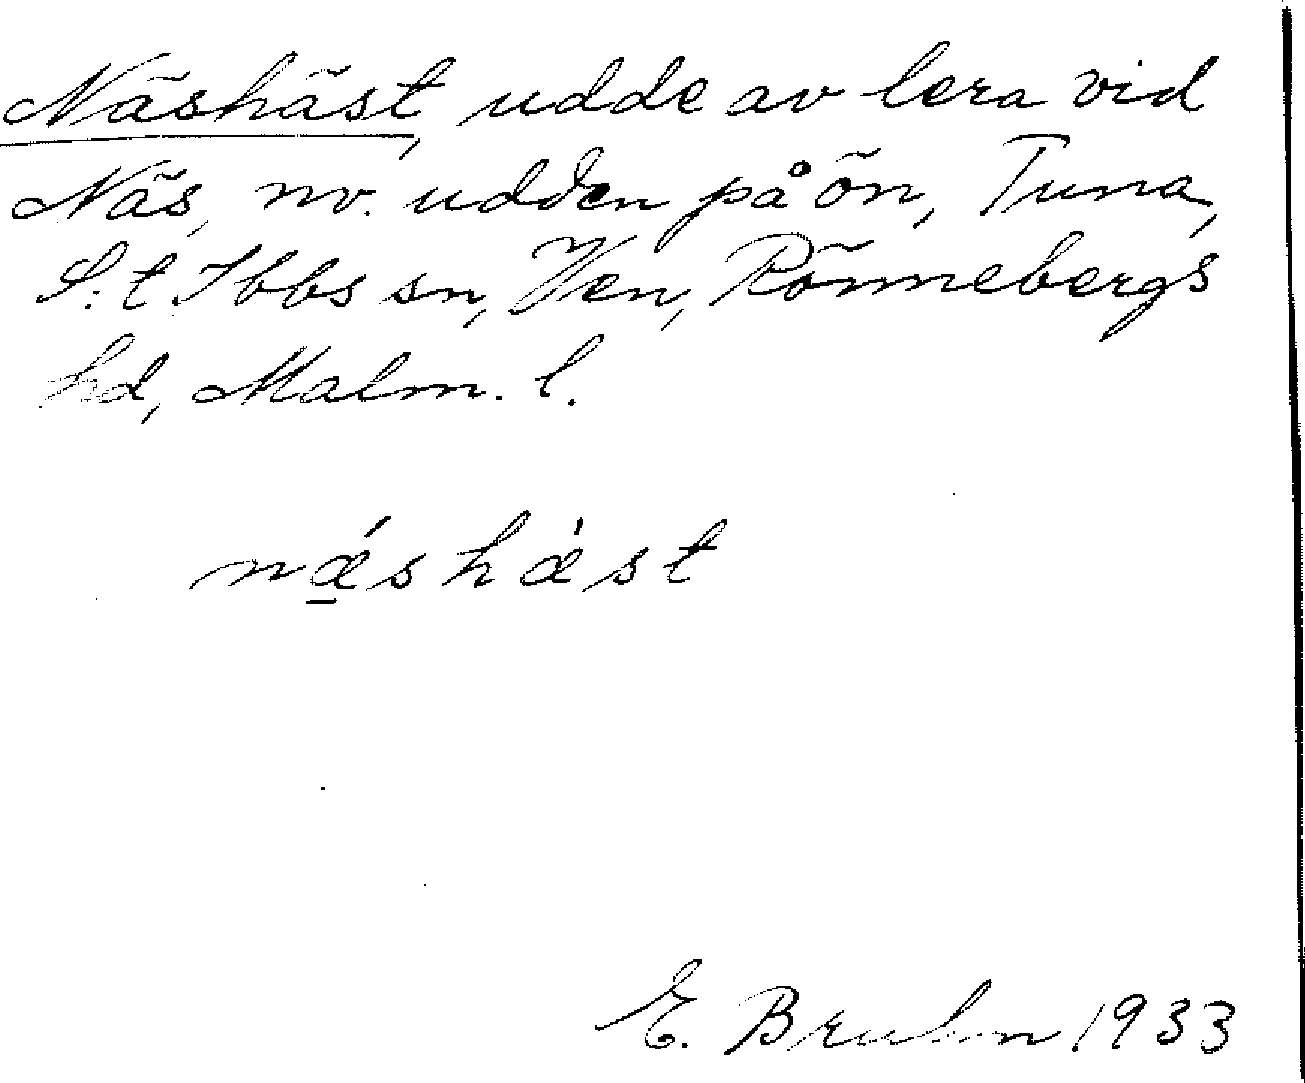 Näshäst, udde av lera vid
Näs, nv. udden på ön, Tuna,
S:t Ibbs sn, Ven, Rönnebergs
hd, Malm. l.
nǽ̱shà̇st
E. Bruhn 1933